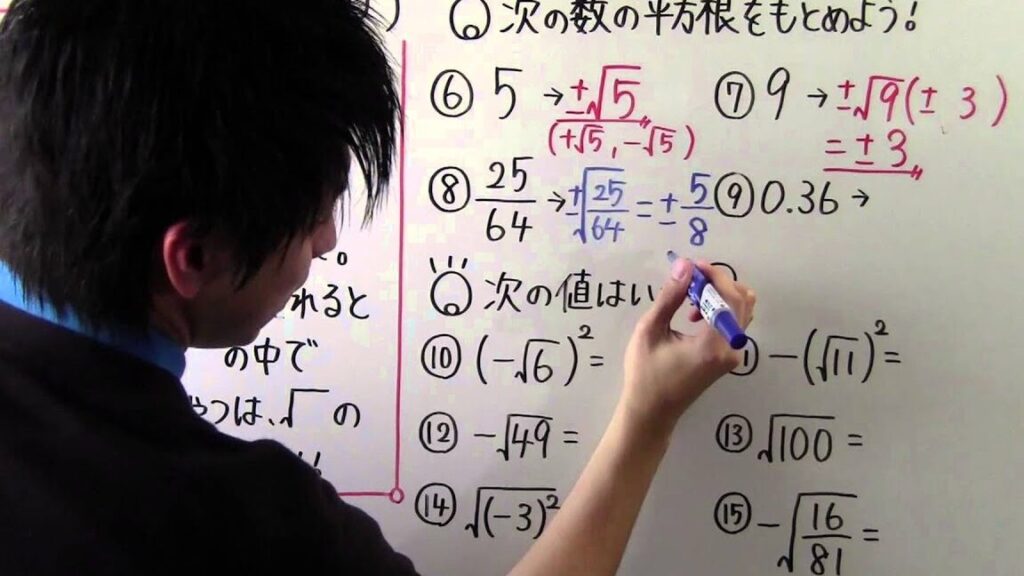 次の数の平方根をもとめよう!
⑥ 5 → ±√5
(+√5, -√5)
⑦ 9 → ±√9 (± 3)
= ±3
⑧ 25/64 → ±√25/64 = ± 5/8
⑨ 0.36 →
次の値はい
⑩ (-√6)² =
-(√11)² =
⑫ -√49 =
⑬ √100 =
⑭ √(-3)²
⑮ -√16/81 =
れると
の中で
つは、√ の